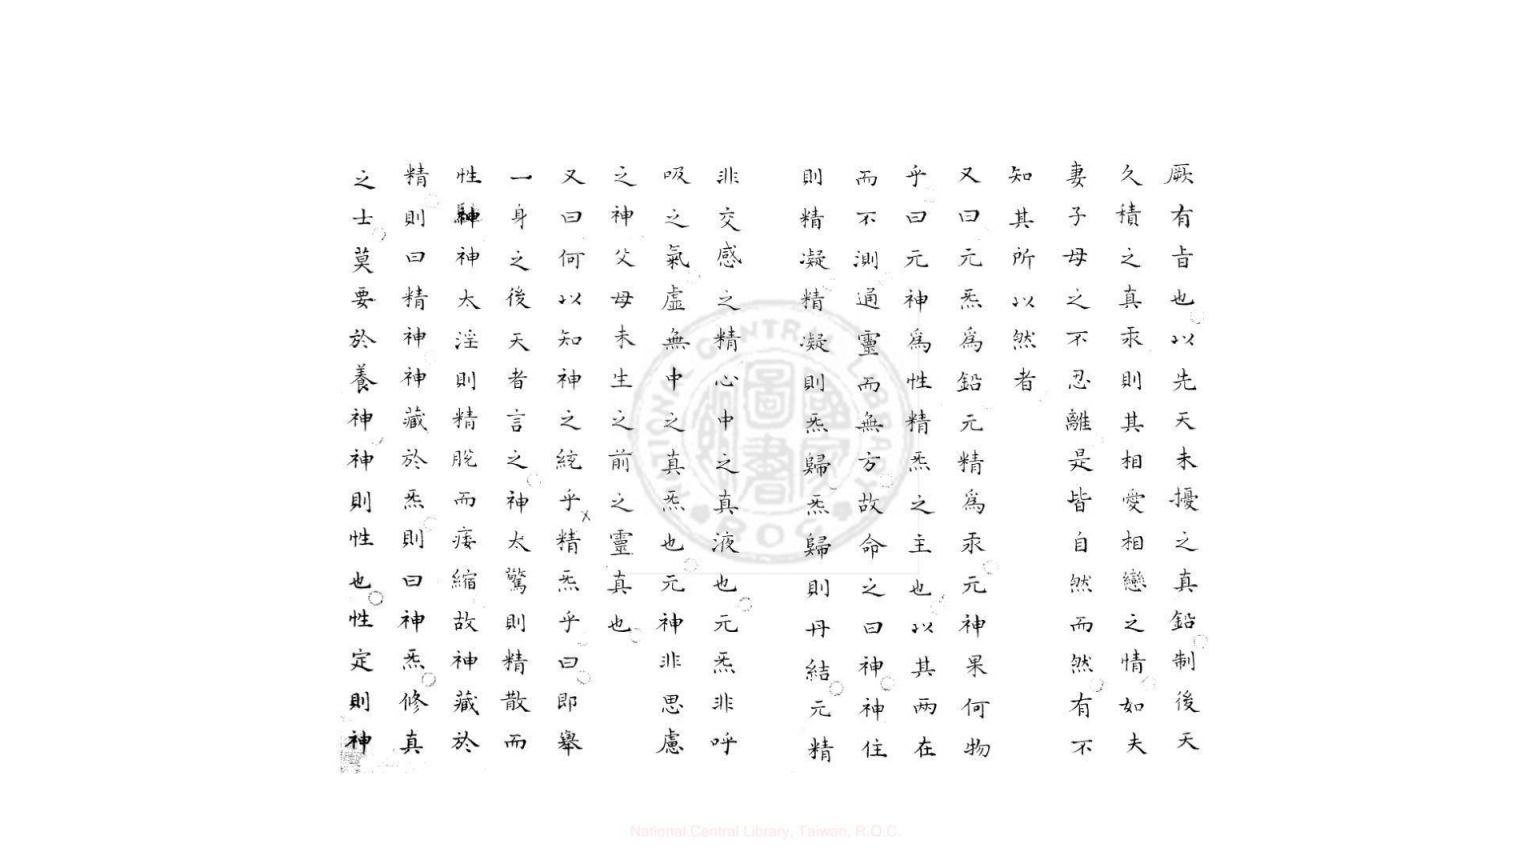 厥有旨也以先天未擾之真鉛制後天
久積之真汞則其相愛相戀之情如夫
妻子母之不忍離是皆自然而然有不
知其所以然者
又曰元炁為鉛元精為汞元神果何物
乎曰元神為性精炁之主也以其两在
而不測通靈而無方故命之曰神神住
則精凝精凝則炁歸炁歸則丹結元精
非交感之精心中之真液也元炁非呼
吸之氣虛無中之真炁也元神非思慮
之神父母未生之前之靈真也
又曰何以知神之統乎精炁乎曰即舉
一身之後天者言之神太驚則精散而
性神神太淫則精脫而痿縮故神藏於
精則曰精神神藏於炁則曰神炁修真
之士莫要於養神神則性也性定則神
NATIONAL CENTRAL LIBRARY
R.O.C.
國家圖書館
National Central Library, Taiwan, R.O.C.